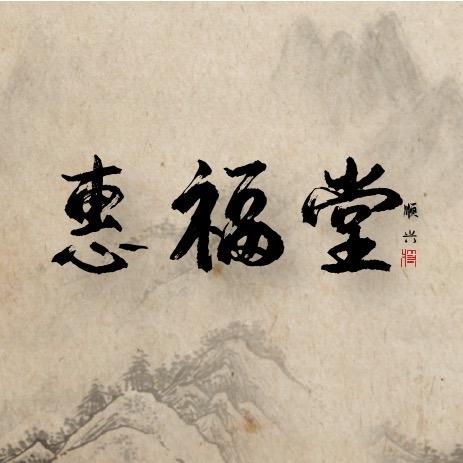 惠福堂
顺兴